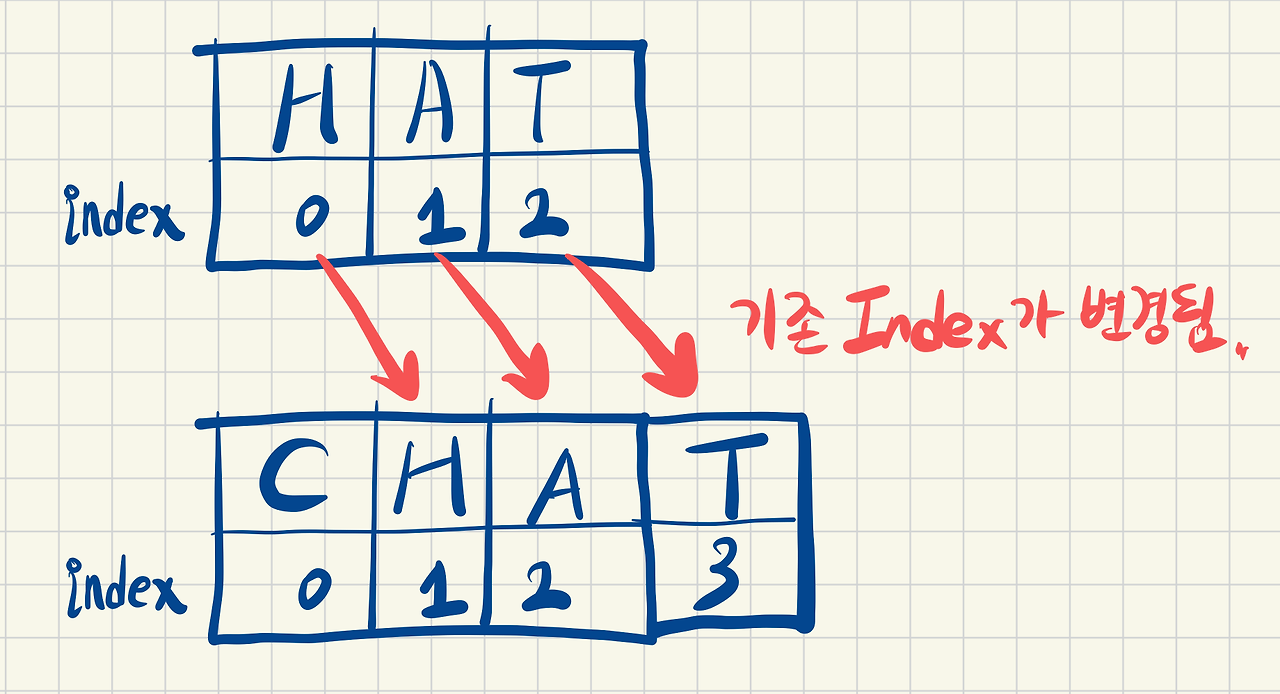 H A T
index 0 1 2
기존 Index가 변경됨..
C H A T
index 0 1 2 3